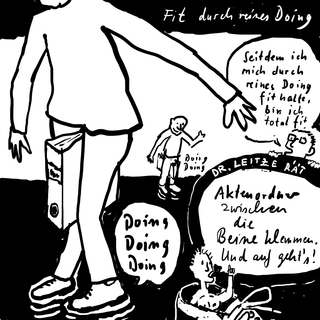 Fit durch reines Doing
Seitdem ich
mich durch
reines Doing
fit halte,
bin ich
total fit
Doing
Doing
DR. LEITZE RÄT
Aktenordner
zwischen
die
Beine klemmen.
Und auf geht's!
Doing
Doing
Doing